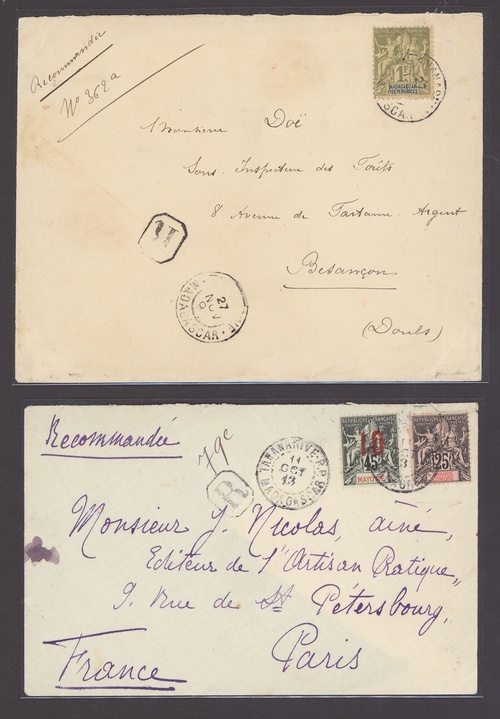 Recommandée
No 362a
RÉPUBLIQUE FRANÇAISE
1 F
MADAGASCAR
ET DÉPENDANCES
Monsieur Doë
Sous-Inspecteur des Forêts
8 Avenue de Fontaine-Argent
Besançon
(Doubs)
27
NOV
MADAGASCAR
Recommandée
79c
TANANARIVE-R.P.
11
OCT
13
MADAGASCAR
R
RÉPUBLIQUE FRANÇAISE
10
45
MAYOTTE
RÉPUBLIQUE FRANÇAISE
25
Monsieur J. Nicolas, aîné,
Editeur de l'"Artisan Pratique"
9, Rue de St Pétersbourg,
Paris
France